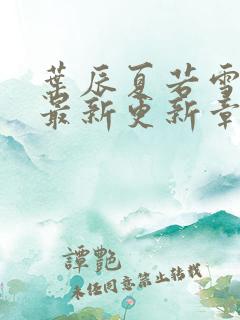 葉辰夏若雪
最新更新章
譚艷
未经同意禁止转载